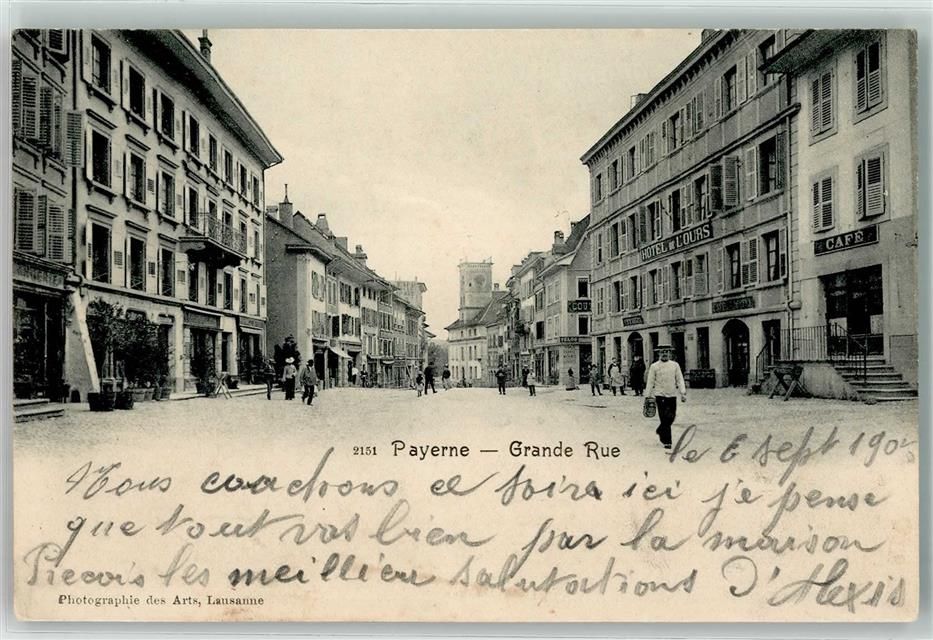 HOTEL DE L'OURS
CAFÉ
2151 Payerne — Grande Rue
le 6 sept 190
Nous couchons ce soir ici je pense
que tout vas bien par la maison
Recevois les meilleur salutations d'Alexis
Photographie des Arts, Lausanne